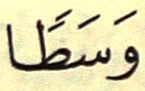 وَسَطًا